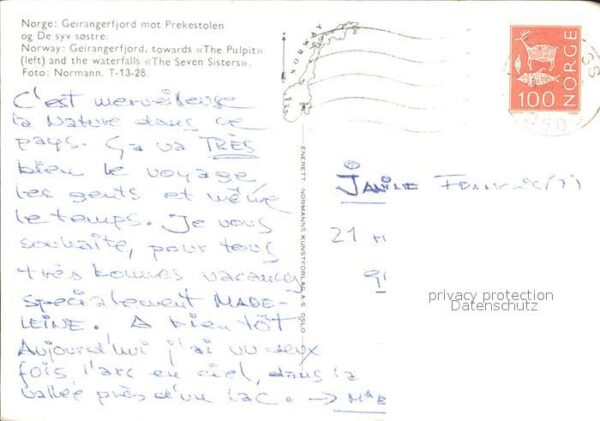 Norge: Geirangerfjord mot Prekestolen
og De syv søstre.
Norway: Geirangerfjord, towards «The Pulpit»
(left) and the waterfalls «The Seven Sisters».
Foto: Normann. T-13-28.
C'est merveilleuse
la Nature dans ce
pays. Ça va TRÈS
bien le voyage
les gents et même
le temps. Je vous
souhaite, pour tous
très bonnes vacances
spécialement MADE-
LEINE. A bientôt
Aujourd'hui j'ai vu deux
fois l'arc en ciel, dans la
vallée près d'un lac. →
NORWAY
ENERETT NORMANNS KUNSTFORLAG A/S OSLO
NORGE
100
JANINE
21
privacy protection
Datenschutz